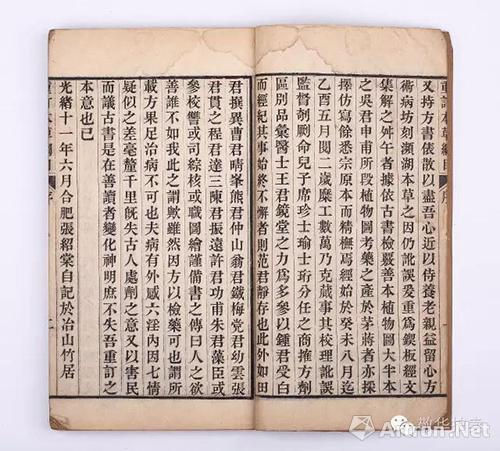 重訂本草綱目 序
又持方書俵散以盡吾心近以侍養老親益留心方
術病坊刻瀕湖本草之因仍訛誤爰重為鍥板經文
集解之舛午者據古書檢覈善本植物圖大半本
之吳君申甫所段植物圖考藥之產於茅蔣者亦採
擇仿寫餘悉宗原本而精橅焉經始於癸未八月迄
乙酉五月閱二歲糜工數萬乃克蕆事其校理訛誤
監督剞劂命兒子席珍士瑜士珩分任之商搉方劑
區別品彙醫士王君鏡堂之力為多參以鍾君受白
而經紀其事始終不懈者則范君靜存也此外如田
君撰異曹君峙峯熊君仲山翁君鐵梅党君幼雲張
君貫之程君巨三陳君振遠許君功甫朱君藻臣或
參校讐或司綜核或職圖繪謹備書之傳曰人之欲
善誰不如我此之謂歟雖然因方以檢藥可也
載方果足治病可也夫病有外感六淫內因七情
疑似之差毫釐千里旣失古人處劑之意又以害民
而議古書是在善讀者變化神明庶不失吾重訂之
本意也已
光緒十一年六月合肥張紹棠自記於冶山竹居
重訂本草綱目 序 二
Artron.Net